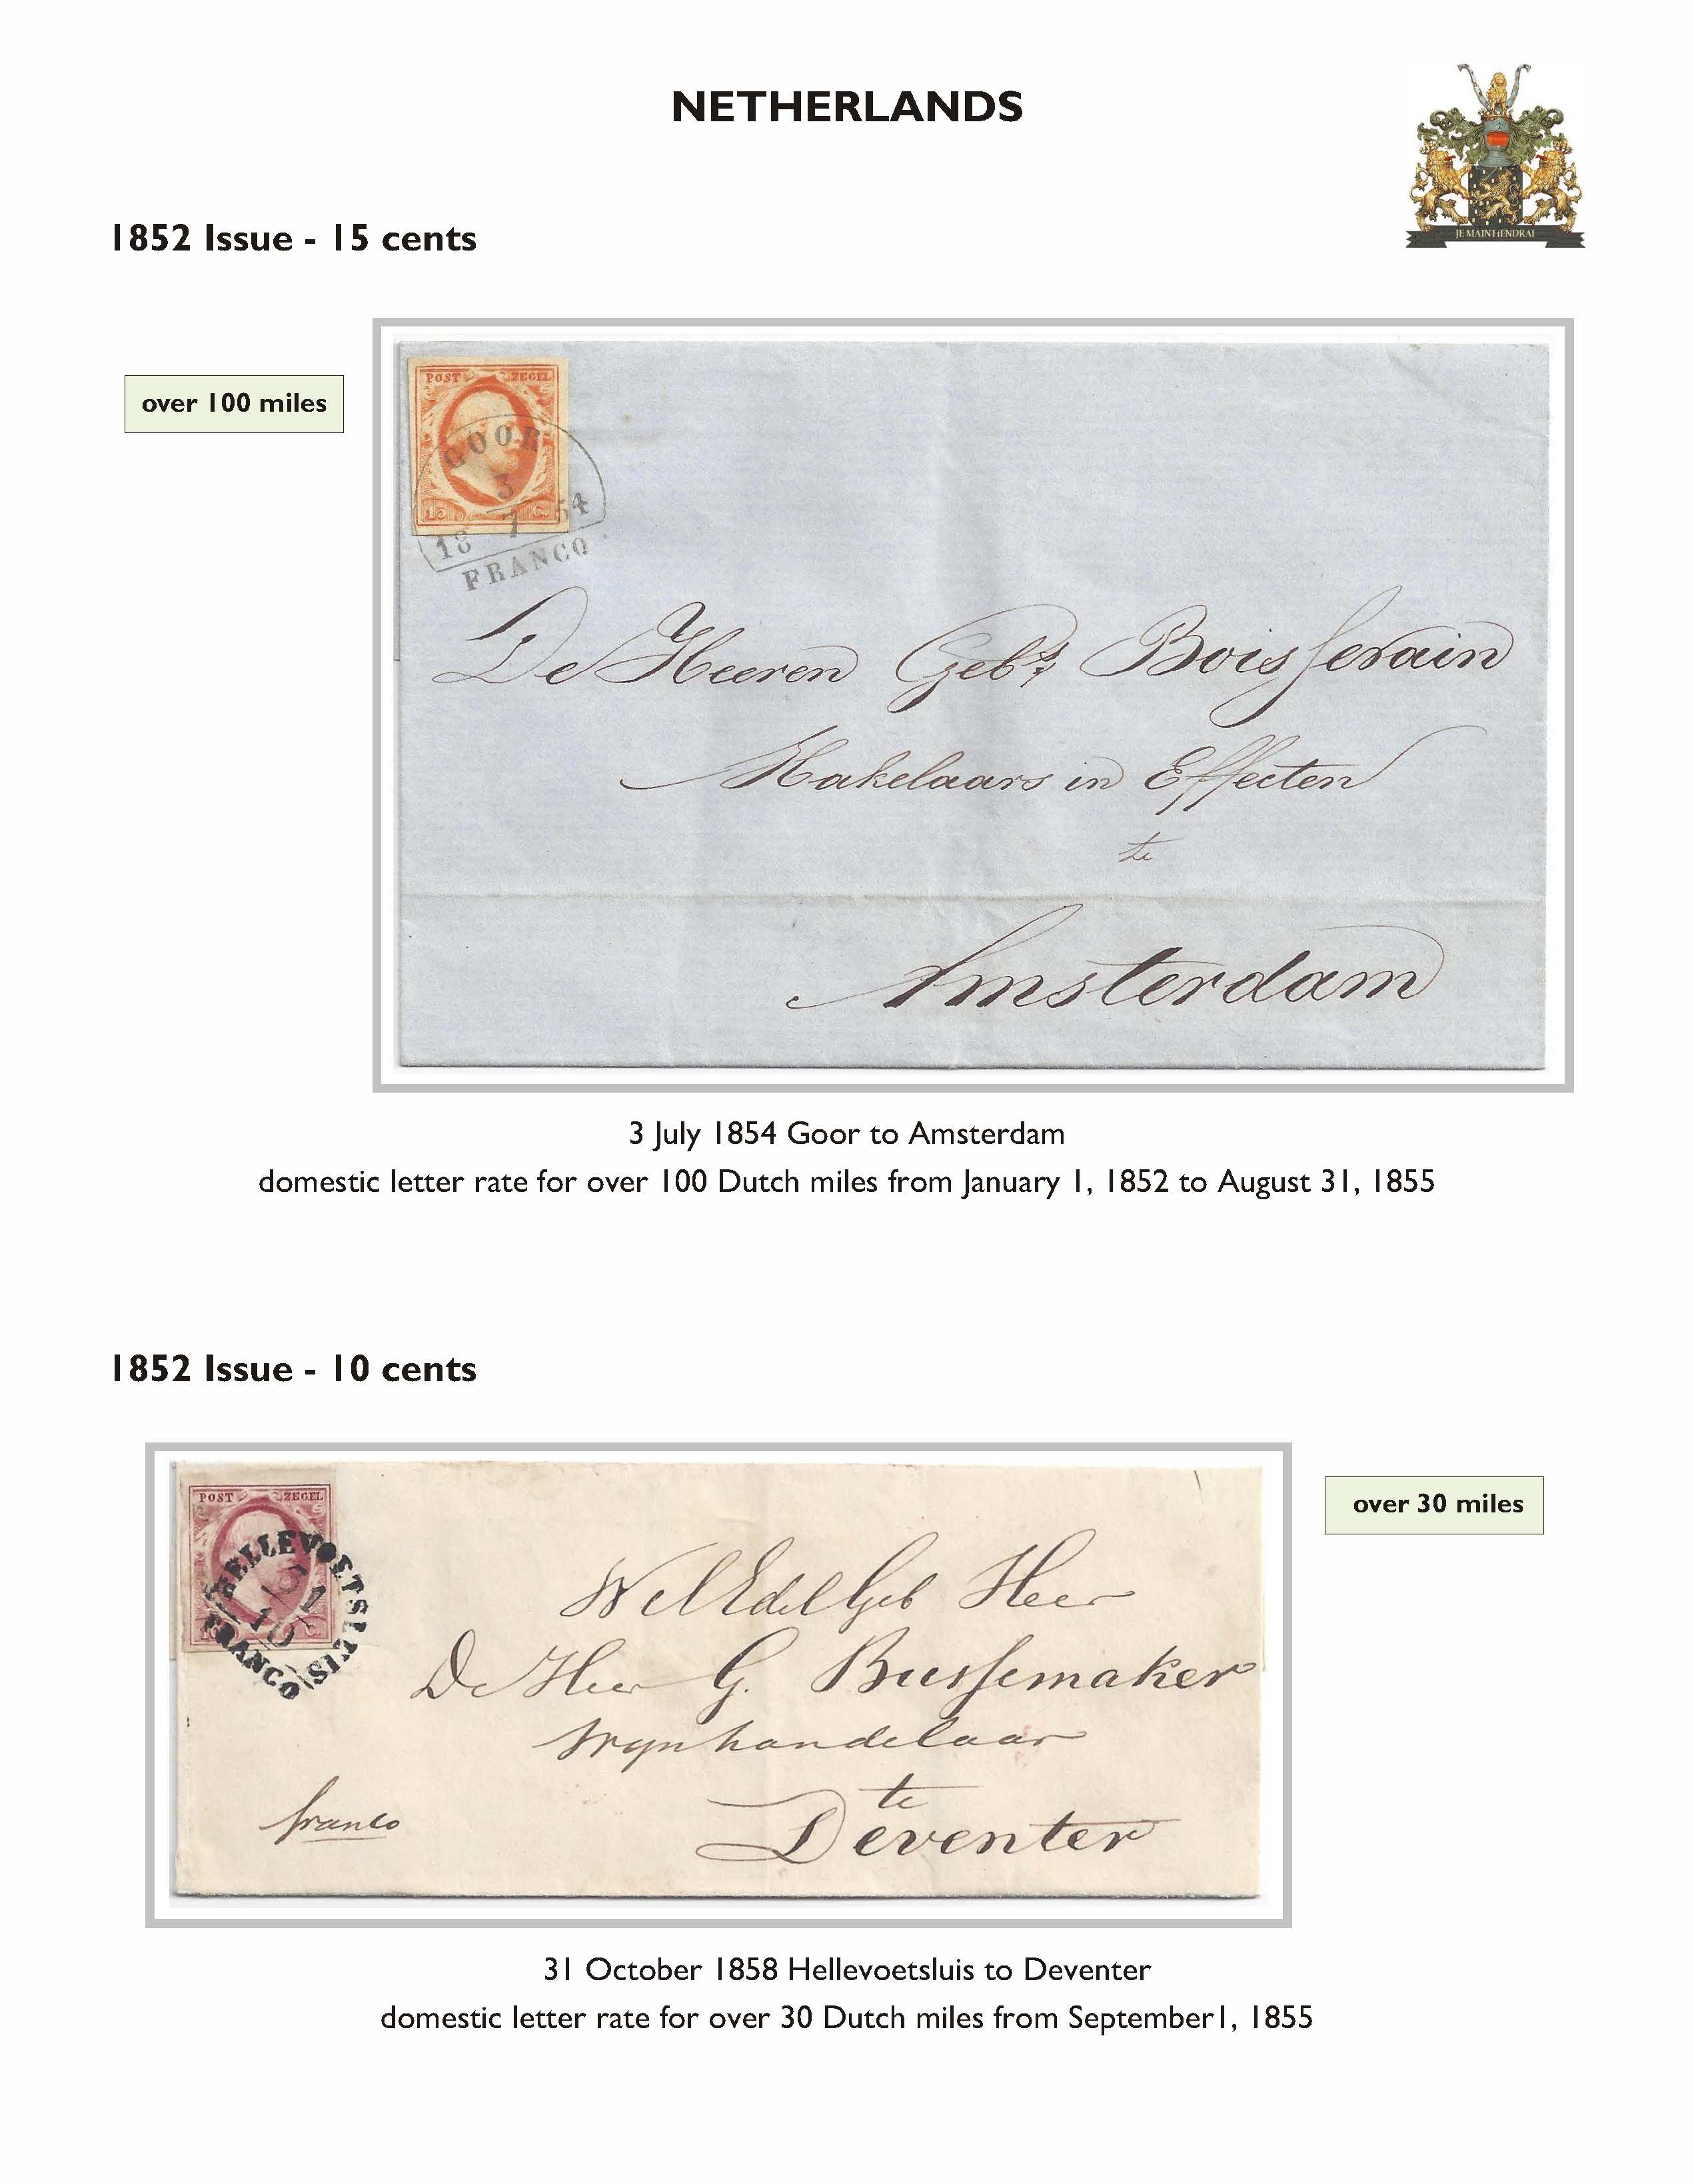 NETHERLANDS
JE MAINTIENDRAI
1852 Issue - 15 cents
over 100 miles
POST ZEGEL
GOOR
3
15 C.
18 7 54
FRANCO
De Heeren Gebrs Boisserain
Makelaars in Effecten
te
Amsterdam
3 July 1854 Goor to Amsterdam
domestic letter rate for over 100 Dutch miles from January 1, 1852 to August 31, 1855
1852 Issue - 10 cents
over 30 miles
POST ZEGEL
HELLEVOETSLUIS
31
10
FRANCO
WelEdelGeb Heer
De Heer G. Bussemaker
Wynhandelaar
te
franco
Deventer
31 October 1858 Hellevoetsluis to Deventer
domestic letter rate for over 30 Dutch miles from September1, 1855